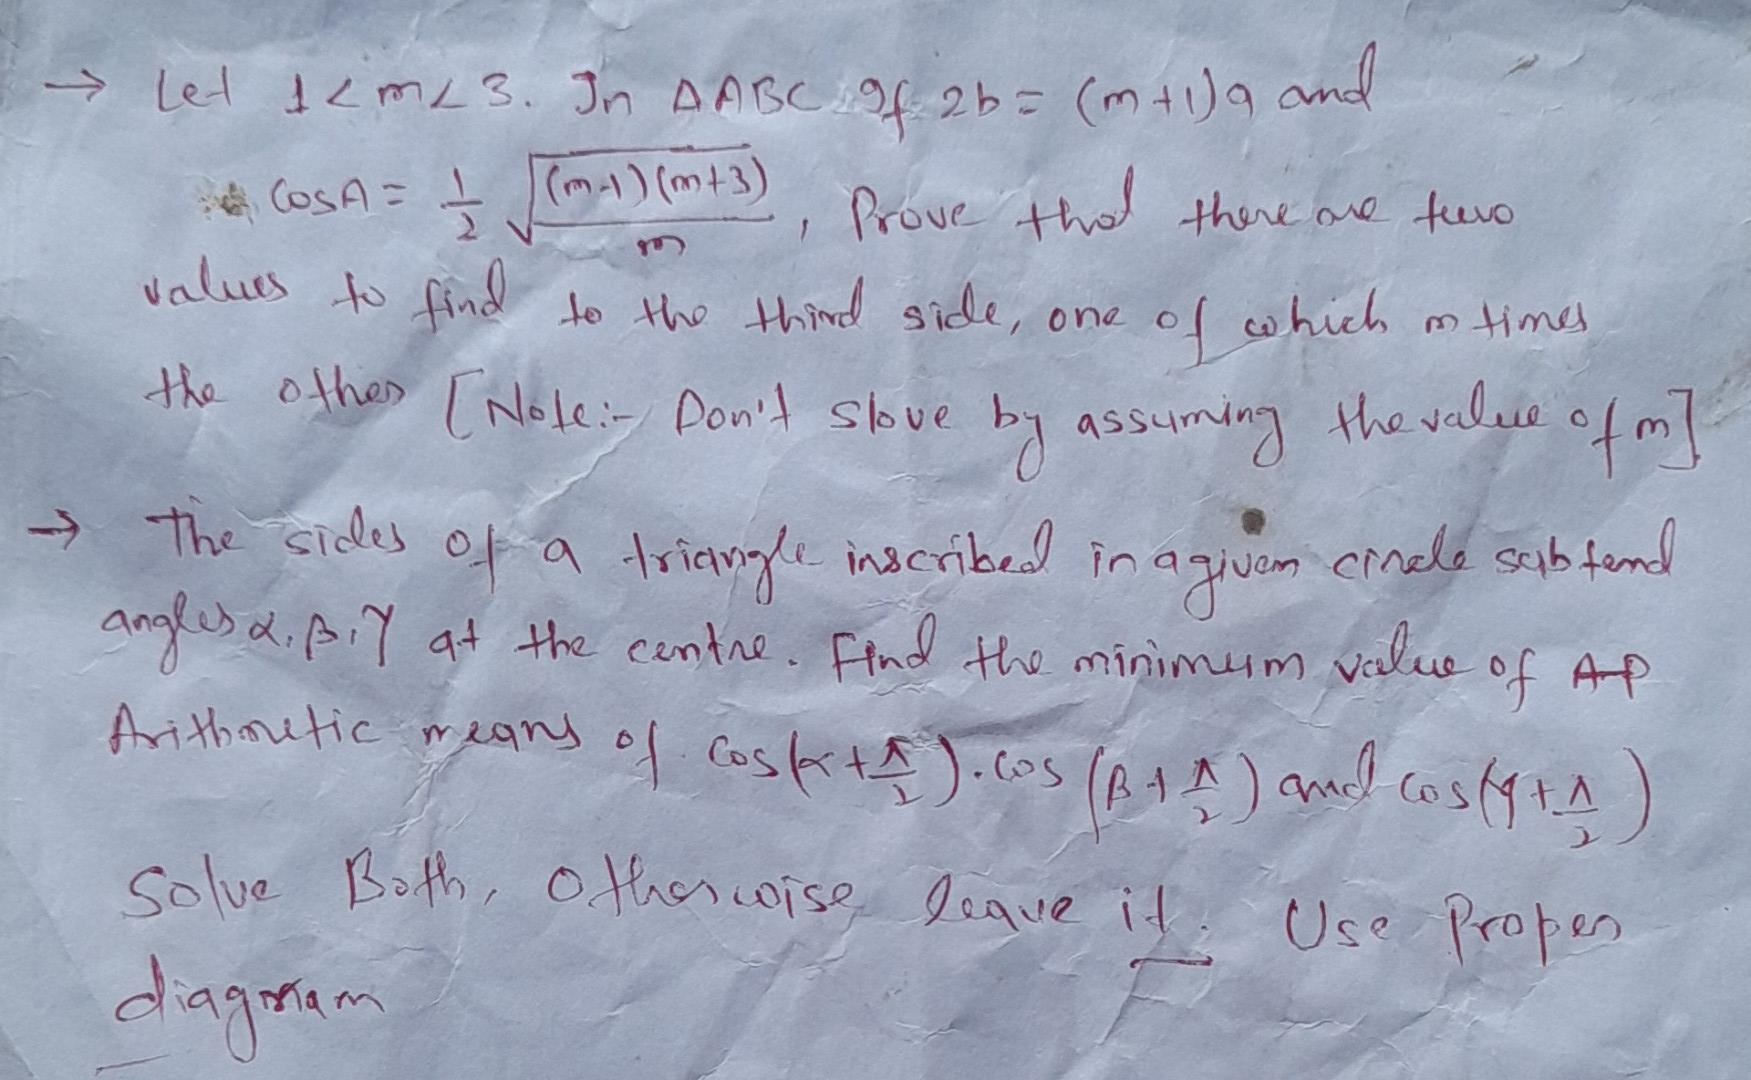 → Let 1 < m < 3. In △ABC If 2b = (m+1)a and
cosA = 1/2 √((m-1)(m+3)/m), Prove that there are two
values to find to the third side, one of which m times
the other [Note:- Don't slove by assuming the value of m]
→ The sides of a triangle inscribed in a given circle subtend
angles α, β, γ at the centre. Find the minimum value of AP
Arithmetic means of cos(α+π/2). cos(β+π/2) and cos(γ+π/2)
Solve Both, Otherwise leave it. Use Proper
diagram